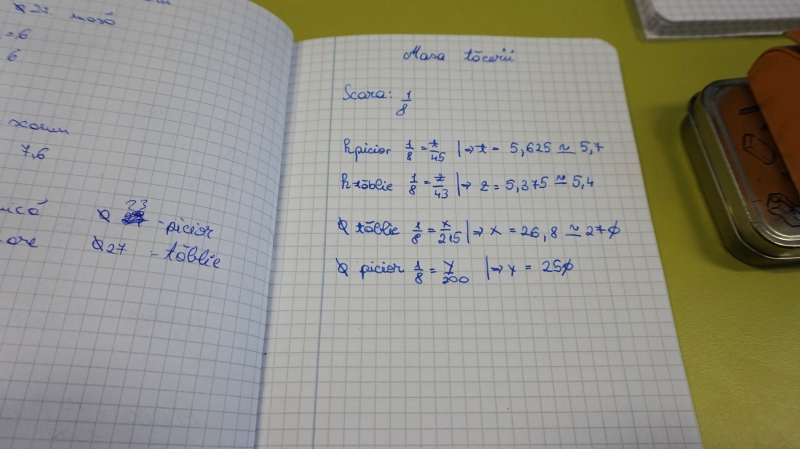 27 masă
= 6
6
7,6
23
-picior
27 - tăblie
Masa tăcerii
Scara: 1/8
h picior 1/8 = t/45 | ⇒ t = 5,625 ≃ 5,7
h tăblie 1/8 = z/43 | ⇒ z = 5,375 ≃ 5,4
Ø tăblie 1/8 = x/215 | ⇒ x = 26,8 ≃ 27 ϕ
Ø picior 1/8 = y/200 | ⇒ y = 25ϕ